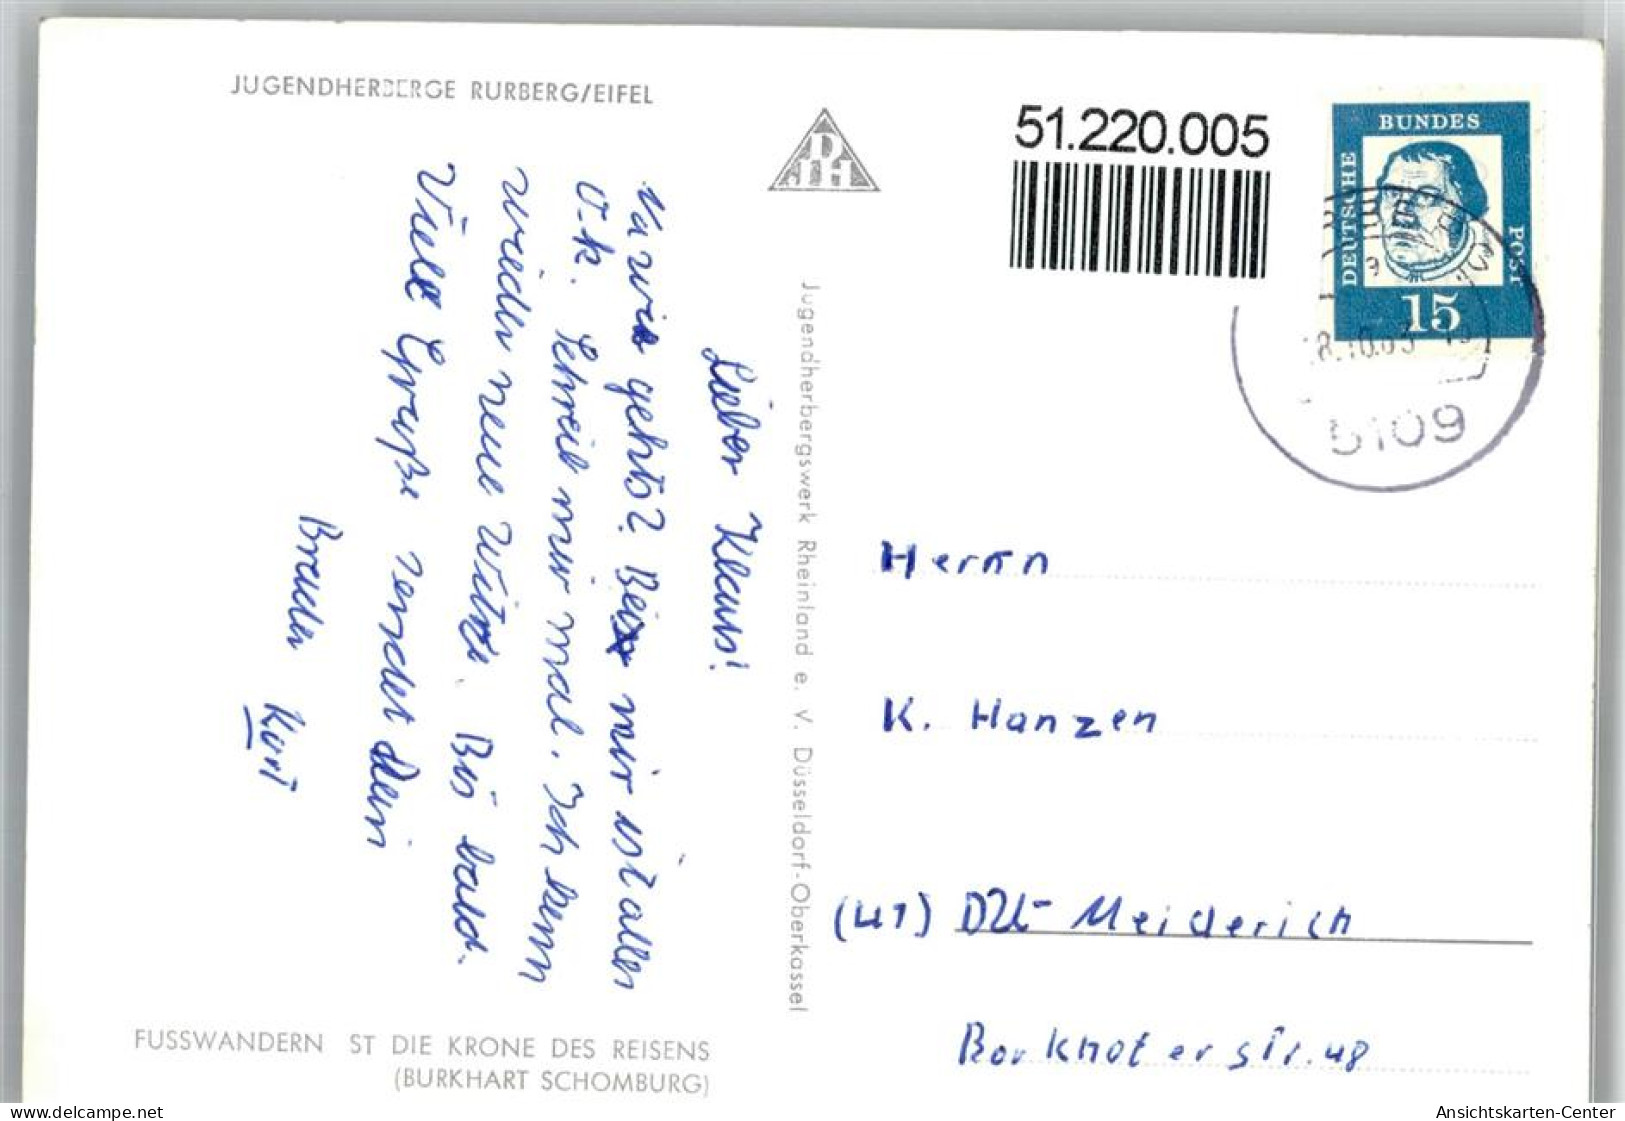 JUGENDHERBERGE RURBERG/EIFEL
DJH
51.220.005
DEUTSCHE
BUNDES
POST
15
8.10.63
5109
Lieber Klaus!
Na wie gehts? Bei mir ist alles
O.k. Schreib mir mal. Ich kenn
wieder neue Witze. Bis bald.
Viele Grüße sendet dein
Bruder Kurt
Jugendherbergswerk Rheinland e. V. Düsseldorf-Oberkassel
Herrn
K. Hanzen
(41) DU-Meiderich
Borkhoferstr. 48
FUSSWANDERN ST DIE KRONE DES REISENS
(BURKHART SCHOMBURG)
www.delcampe.net
Ansichtskarten-Center